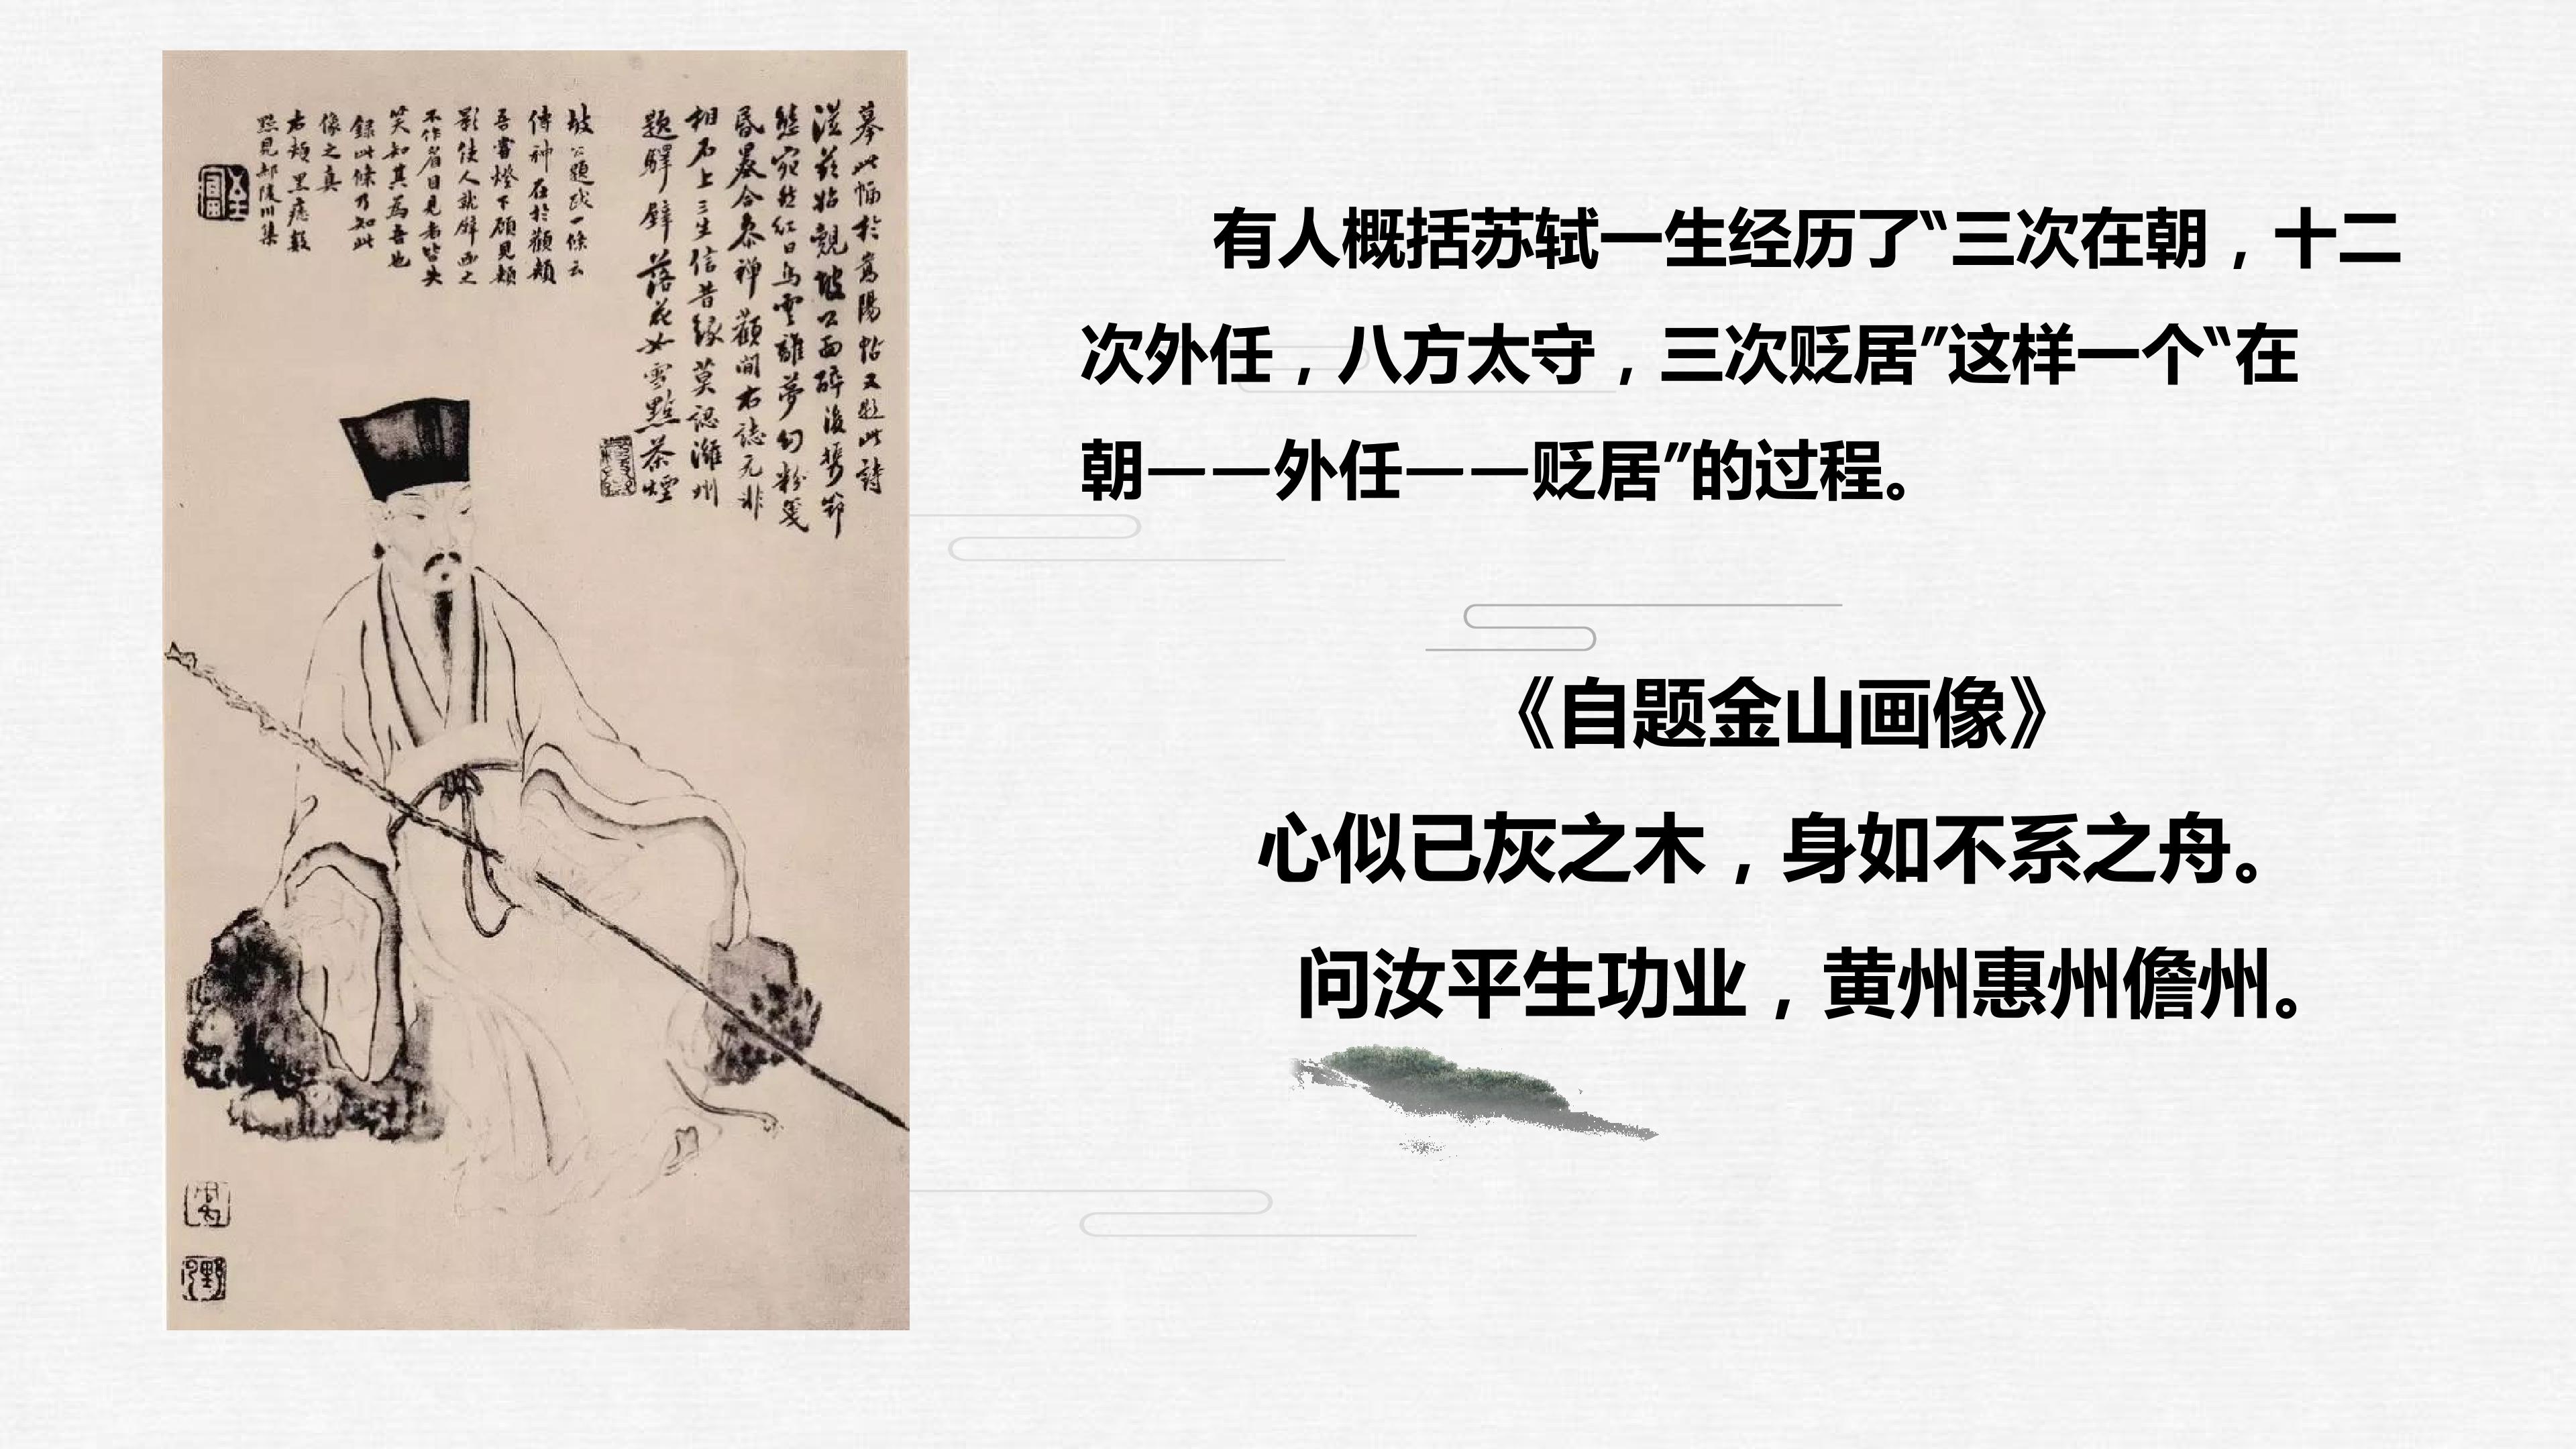 摹此幅於嵩陽帖又題此詩
坡公面醉後攜筇
態宛然紅日烏雲誰夢幻粉箋
昏暮合參禪顴間右誌元非
相石上三生信昔緣莫認濰州
題驛壁落花如雪點茶煙
坡公題跋一條云
傳神在於顴頰
吾嘗燈下顧見頰
影使人就壁畫之
不作眉目見者皆失
笑知其為吾也
錄此條乃知此
像之真
右頰黑痣數
點見郝陵川集
有人概括苏轼一生经历了“三次在朝，十二
次外任，八方太守，三次贬居”这样一个“在
朝——外任——贬居”的过程。
《自题金山画像》
心似已灰之木，身如不系之舟。
问汝平生功业，黄州惠州儋州。